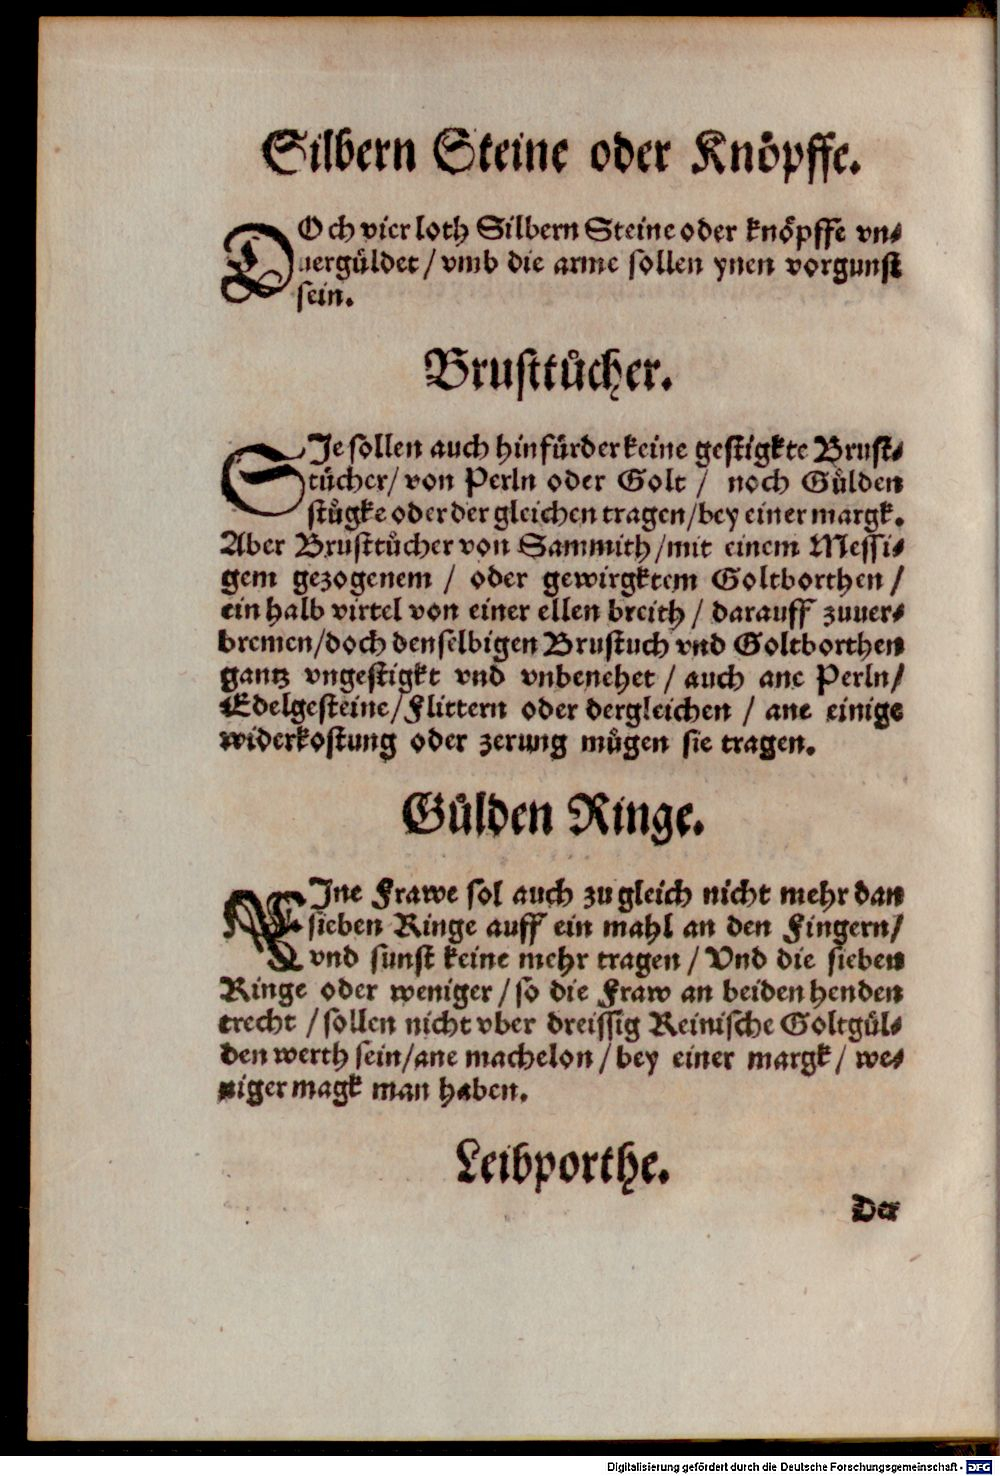 Silbern Steine oder Knöpffe.
DOch vier loth Silbern Steine oder knöpffe vn⸗
uergüldet / vmb die arme sollen ynen vorgunst
sein.
Brusttuͤcher.
SJe sollen auch hinfürder keine gestigkte Brust⸗
tuͤcher / von Perln oder Golt / noch Guͤlden
stuͤgke oder der gleichen tragen / bey einer margk.
Aber Brusttuͤcher von Sammith / mit einem Messi⸗
gem gezogenem / oder gewirgktem Goltborthen /
ein halb virtel von einer ellen breith / darauff zuuer⸗
bremen / doch denselbigen Brustuch vnd Goltborthen
gantz vngestigkt vnd vnbenehet / auch ane Perln /
Edelgesteine / Flittern oder dergleichen / ane einige
widerkostung oder zerung muͤgen sie tragen.
Guͤlden Ringe.
EJne Frawe sol auch zu gleich nicht mehr dan
sieben Ringe auff ein mahl an den Fingern /
vnd sunst keine mehr tragen / Vnd die sieben
Ringe oder weniger / so die Fraw an beiden henden
trecht / sollen nicht vber dreissig Reinische Goltgül⸗
den werth sein / ane machelon / bey einer margk / we⸗
niger magk man haben.
Leibporthe.
Der
Digitalisierung gefördert durch die Deutsche Forschungsgemeinschaft - DFG